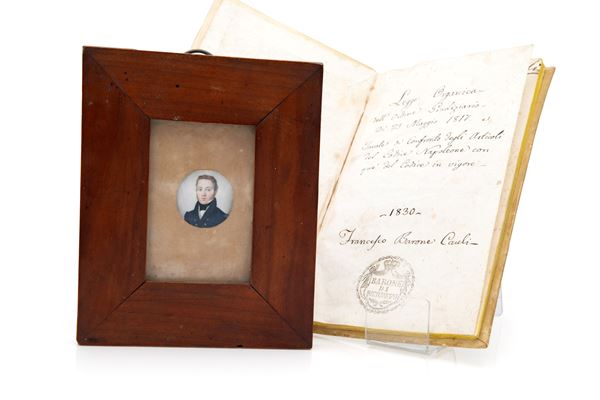 Legge Organica
dell'Ordine Giudiziario
de' 29 Maggio 1817. e
Tavole di Confronto degli Articoli
del Codice Napoleone con
que' del Codice in vigore
1830
Francesco Barone Cauli
BARONE
DI